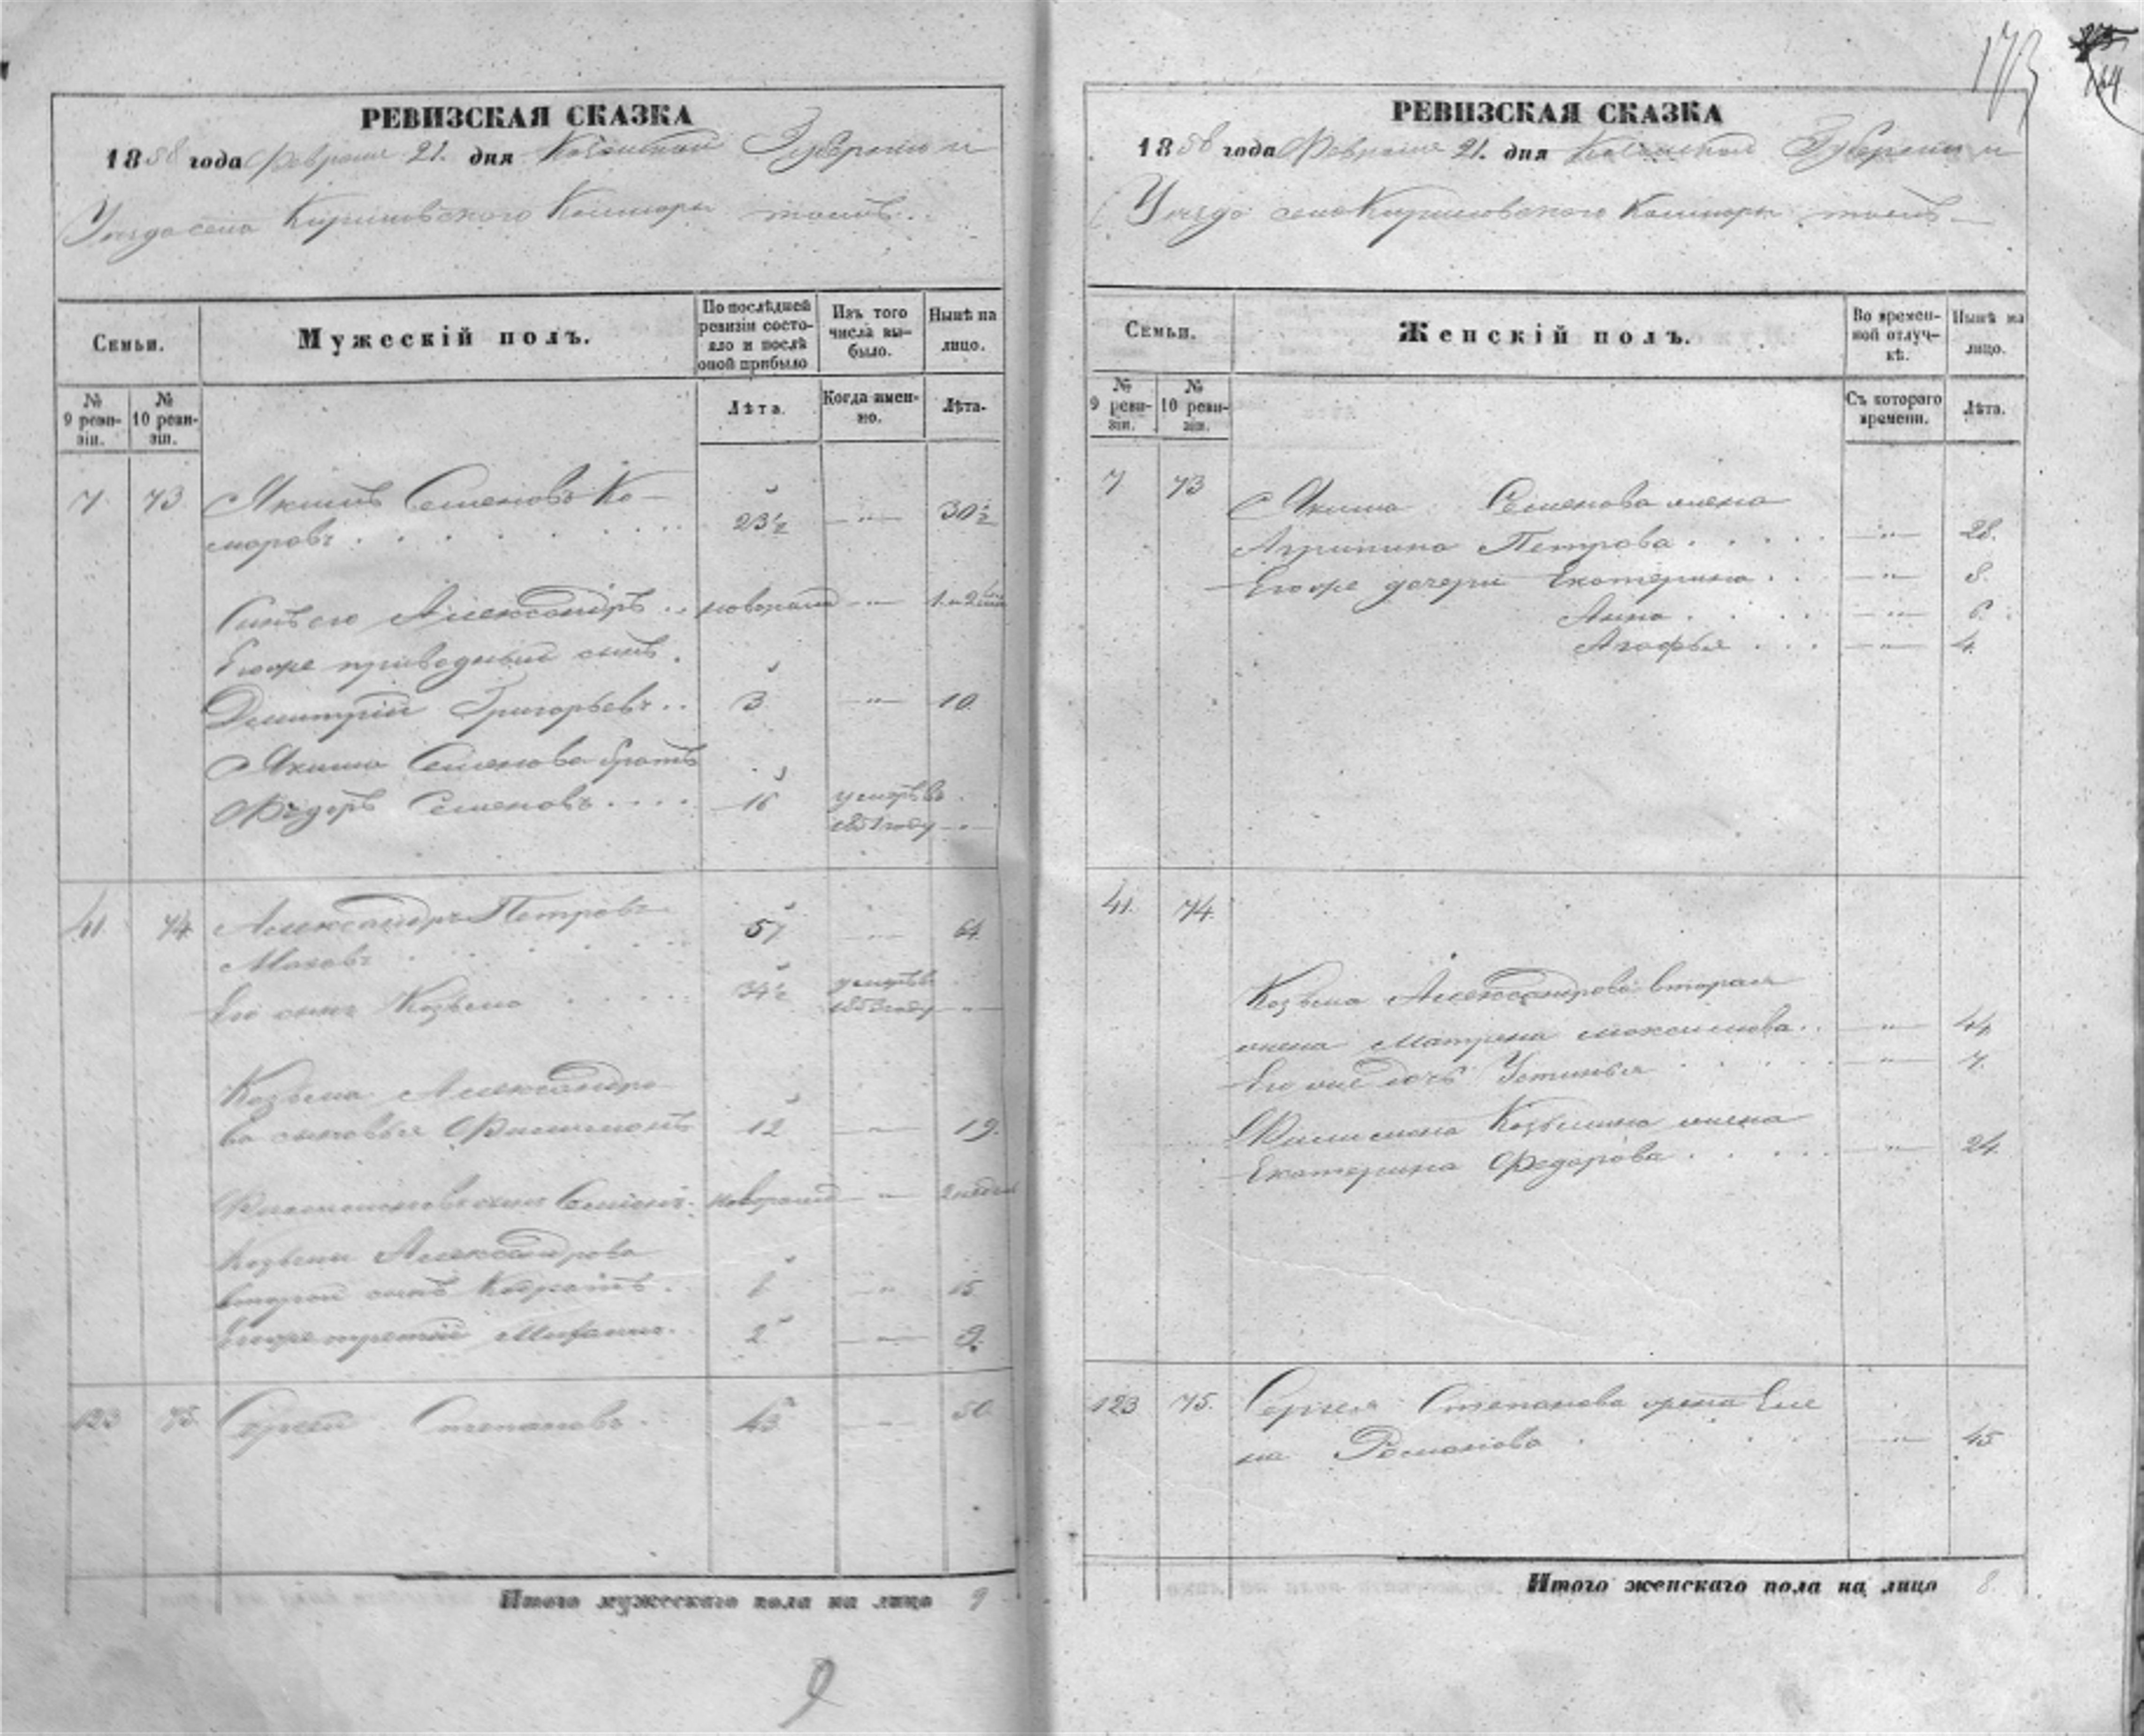 РЕВИЗСКАЯ СКАЗКА
1858 года Февраля 21. дня Казанской Губернии и
Уезда села Кириловского Комаръ тожъ..
Семьи.
Мужескій полъ.
По послѣдней ревизіи состояло и послѣ оной прибыло
Изъ того числа выбыло.
Нынѣ на лицо.
№ 9 ревизіи.
№ 10 ревизіи.
Лѣта.
Когда именно.
Лѣта.
7. 73. Якимъ Семеновъ Ко-
маровъ . . . 23½ —"— 30½
Сынъ его Александръ .. новорожд —"— 1. и 2
Егоже приводный сынъ.
Дмитрій Григорьевъ .. 3 —"— 10.
Якима Семенова братъ
Ѳедоръ Семеновъ .... 16 умеръ въ
1851 году —"—
41 74. Александръ Петровъ
. . . 57 —"— 64.
Его сынъ Козьма . . . 34½ умеръ въ
1853 году —"—
Козьма Александро
ва сыновья Филимонъ 12 —"— 19.
Филимоновъ сынъ Семенъ. новорожд —"— 2 недели
Козьмы Александрова
второй сынъ Кодратъ. 8 —"— 15
Егоже третій 2 —"— 9.
123 75. Сергей Степановъ . 43 —"— 50.
Итого мужескаго пола на лицо 9
9
173
164
РЕВИЗСКАЯ СКАЗКА
1858 года Февраля 21. дня Казанской Губернии и
Уезда села Кириловского Комаръ тожъ—
Семьи.
Женскій полъ.
Во временной отлучкѣ.
Нынѣ на лицо.
№ 9 ревизіи.
№ 10 ревизіи.
Съ котораго времени.
Лѣта.
7 73 Якима Семенова жена
Агрипина Петрова . . . —"— 28.
Егоже дочери Екатерина . . —"— 8.
Анна . . . —"— 6.
Агафья . . . —"— 4.
41. 74.
Козьма Александрова вторая
жена Матрена Максимова .. —"— 44
Его же дочь Устинья . . . —"— 7.
Филимона Козьмина жена
Екатерина Федорова . . . —"— 24.
123 75. Сергея Степанова жена Еле
на Романова . . . —"— 45
Итого женскаго пола на лицо 8.